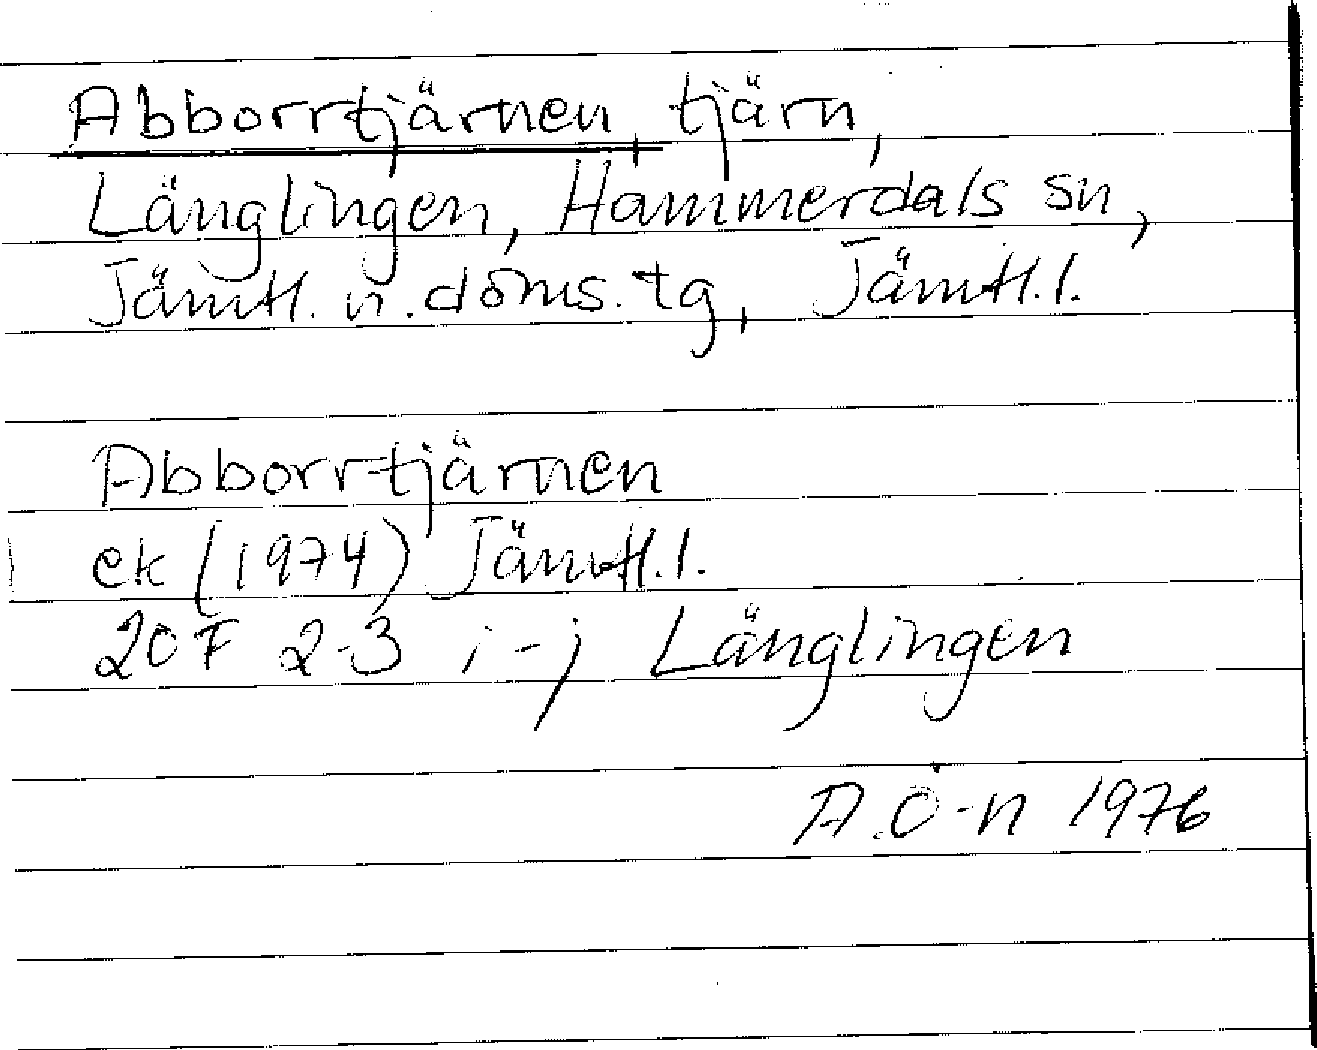 Abborrtjärnen, tjärn,
Länglingen, Hammerdals sn,
Jämtl. n. doms. tg, Jämtl. l.
Abborrtjärnen
ek (1974) Jämtl. l.
20F 2-3 i-j Länglingen
A.Ö-n 1976